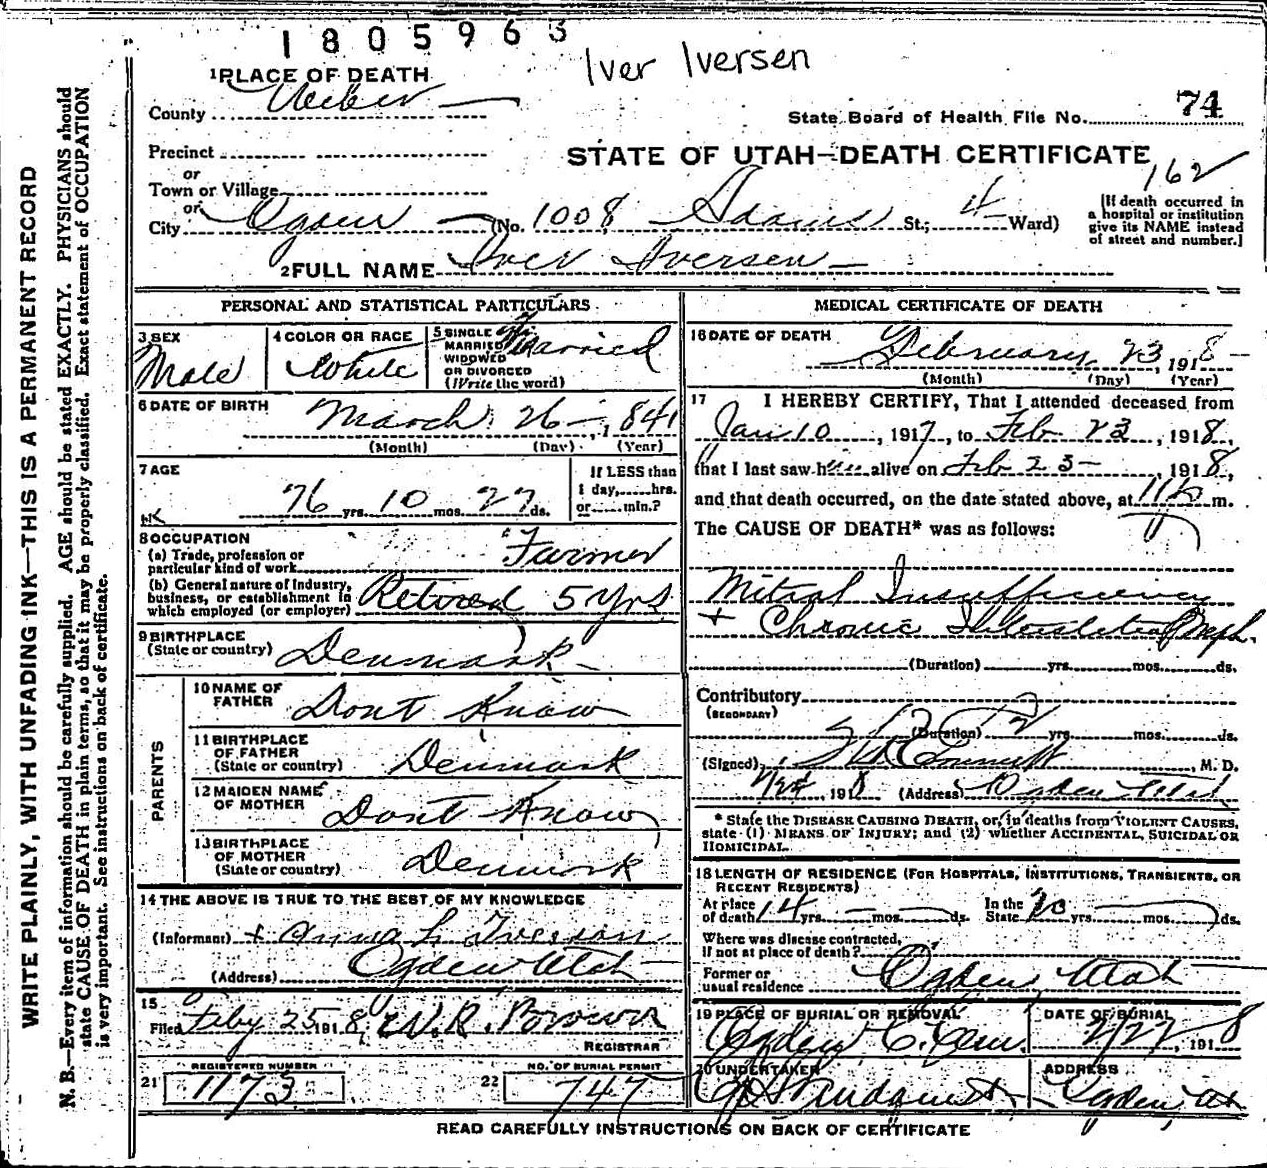 1805963
Iver Iversen
1 PLACE OF DEATH
County Weber
State Board of Health File No. 74
Precinct
STATE OF UTAH—DEATH CERTIFICATE
162
or
Town or Village
or
City Ogden (No. 1008 Adams St.; 4 Ward)
[If death occurred in
a hospital or institution
give its NAME instead
of street and number.]
2 FULL NAME Iver Iversen
PERSONAL AND STATISTICAL PARTICULARS
3 SEX
Male
4 COLOR OR RACE
White
5 SINGLE
MARRIED
WIDOWED
OR DIVORCED
(Write the word)
Married
6 DATE OF BIRTH
March 26, 1841
(Month) (Day) (Year)
7 AGE
76 yrs. 10 mos. 27 ds.
If LESS than
1 day,......hrs.
or......min.?
8 OCCUPATION
(a) Trade, profession or
particular kind of work Farmer
(b) General nature of industry,
business, or establishment in
which employed (or employer) Retired 5 yrs
9 BIRTHPLACE
(State or country) Denmark
PARENTS
10 NAME OF
FATHER Dont Know
11 BIRTHPLACE
OF FATHER
(State or country) Denmark
12 MAIDEN NAME
OF MOTHER Dont Know
13 BIRTHPLACE
OF MOTHER
(State or country) Denmark
14 THE ABOVE IS TRUE TO THE BEST OF MY KNOWLEDGE
(Informant) + Anna L Iverson
(Address) Ogden Utah
15
Filed Feby 25 1918, W. R. Brown
REGISTRAR
21 REGISTERED NUMBER
1173
22 NO. OF BURIAL PERMIT
747
MEDICAL CERTIFICATE OF DEATH
16 DATE OF DEATH
February 23, 1918
(Month) (Day) (Year)
17 I HEREBY CERTIFY, That I attended deceased from
Jan 10, 1917, to Feb 23, 1918,
that I last saw him alive on Feb 23, 1918,
and that death occurred, on the date stated above, at m.
The CAUSE OF DEATH* was as follows:
Mitral Insufficiency
+ Chronic
(Duration) yrs. mos. ds.
Contributory
(SECONDARY)
(Duration) 2 yrs. mos. ds.
(Signed) M. D.
1918 (Address) Ogden Utah
* State the DISEASE CAUSING DEATH, or, in deaths from VIOLENT CAUSES,
state (1) MEANS OF INJURY; and (2) whether ACCIDENTAL, SUICIDAL OR
HOMICIDAL.
18 LENGTH OF RESIDENCE (FOR HOSPITALS, INSTITUTIONS, TRANSIENTS, OR
RECENT RESIDENTS)
At place
of death 14 yrs. mos. ds.
In the
State yrs. mos. ds.
Where was disease contracted,
if not at place of death?
Former or
usual residence Ogden, Utah
19 PLACE OF BURIAL OR REMOVAL
Ogden C. Cem.
DATE OF BURIAL
2/27, 1918
20 UNDERTAKER
ADDRESS
Ogden, Ut
READ CAREFULLY INSTRUCTIONS ON BACK OF CERTIFICATE
WRITE PLAINLY, WITH UNFADING INK—THIS IS A PERMANENT RECORD
N. B.—Every item of information should be carefully supplied. AGE should be stated EXACTLY. PHYSICIANS should
state CAUSE OF DEATH in plain terms, so that it may be properly classified. Exact statement of OCCUPATION
is very important. See instructions on back of certificate.